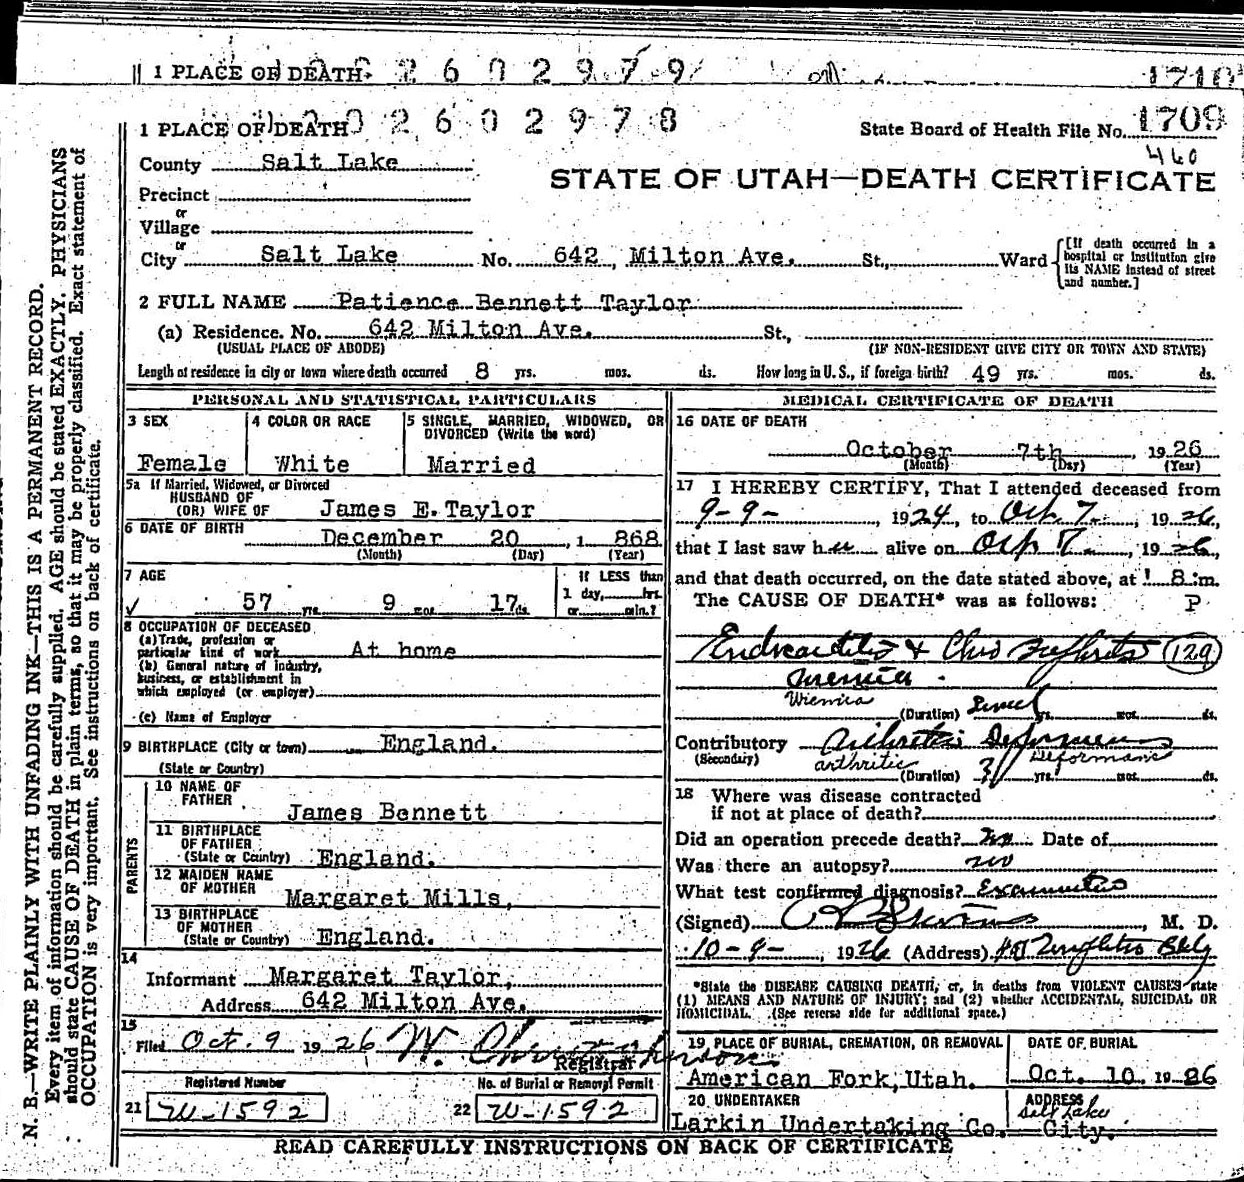 1 PLACE OF DEATH 2 6 0 2 9 7 9 1710
1 PLACE OF DEATH 0 2 6 0 2 9 7 8 State Board of Health File No. 1709
460
County Salt Lake
STATE OF UTAH—DEATH CERTIFICATE
Precinct
or
Village
or
City Salt Lake No. 642, Milton Ave. St., Ward [If death occurred in a hospital or institution give its NAME instead of street and number.]
2 FULL NAME Patience Bennett Taylor
(a) Residence. No. 642 Milton Ave. St.,
(USUAL PLACE OF ABODE) (IF NON-RESIDENT GIVE CITY OR TOWN AND STATE)
Length of residence in city or town where death occurred 8 yrs. mos. ds. How long in U.S., if foreign birth? 49 yrs. mos. ds.
PERSONAL AND STATISTICAL PARTICULARS
3 SEX 4 COLOR OR RACE 5 SINGLE, MARRIED, WIDOWED, OR
DIVORCED (Write the word)
Female White Married
5a If Married, Widowed, or Divorced
HUSBAND OF
(OR) WIFE OF James E. Taylor
6 DATE OF BIRTH December 20, 1 868
(Month) (Day) (Year)
7 AGE If LESS than
1 day, hrs.
57 yrs. 9 mos. 17 ds. or min.?
8 OCCUPATION OF DECEASED
(a) Trade, profession or
particular kind of work At home
(b) General nature of industry,
business, or establishment in
which employed (or employer)
(c) Name of Employer
9 BIRTHPLACE (City or town) England.
(State or Country)
PARENTS
10 NAME OF
FATHER James Bennett
11 BIRTHPLACE
OF FATHER
(State or Country) England.
12 MAIDEN NAME
OF MOTHER Margaret Mills,
13 BIRTHPLACE
OF MOTHER
(State or Country) England.
14
Informant Margaret Taylor,
Address 642 Milton Ave.
15
Filed Oct. 9 1926 W.
Registrar
Registered Number No. of Burial or Removal Permit
21 W-1592 22 W-1592
MEDICAL CERTIFICATE OF DEATH
16 DATE OF DEATH
October 7th, 1926
(Month) (Day) (Year)
17 I HEREBY CERTIFY, That I attended deceased from
9-9-, 1924, to Oct 7, 1926,
that I last saw her alive on Oct 7, 1926,
and that death occurred, on the date stated above, at 8:m.
The CAUSE OF DEATH* was as follows: P
Endocarditis & Chro Nephritis 129
Uremia
Uremica
(Duration) yrs. mos. ds.
Contributory Arthritis Deformans
(Secondary) arthritic Deformans
(Duration) yrs. mos. ds.
18 Where was disease contracted
if not at place of death?
Did an operation precede death? no Date of
Was there an autopsy? no
What test confirmed diagnosis? Examination
(Signed) M. D.
10-9-, 1926 (Address) Bldg
*State the DISEASE CAUSING DEATH, or, in deaths from VIOLENT CAUSES state
(1) MEANS AND NATURE OF INJURY; and (2) whether ACCIDENTAL, SUICIDAL OR
HOMICIDAL. (See reverse side for additional space.)
19 PLACE OF BURIAL, CREMATION, OR REMOVAL DATE OF BURIAL
American Fork, Utah. Oct. 10, 1926
20 UNDERTAKER ADDRESS
Salt Lake
Larkin Undertaking Co. City.
READ CAREFULLY INSTRUCTIONS ON BACK OF CERTIFICATE
N. B.—WRITE PLAINLY WITH UNFADING INK—THIS IS A PERMANENT RECORD.
Every item of information should be carefully supplied. AGE should be stated EXACTLY. PHYSICIANS
should state CAUSE OF DEATH in plain terms, so that it may be properly classified. Exact statement of
OCCUPATION is very important. See instructions on back of certificate.